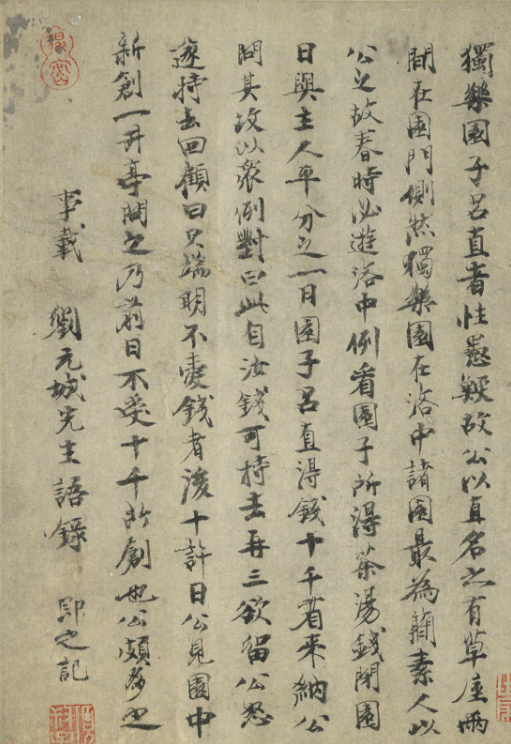 獨樂園子呂直者性愚鯁故公以直名之有草屋兩
間在園門側然獨樂園在洛中諸園最為簡素人以
公之故春時必遊洛中例看園子所得茶湯錢閉園
日與主人平分之一日園子呂直得錢十千省來納公
問其故以衆例對曰此自汝錢可持去再三欲留公怒
遂持去回顧曰只端明不愛錢者後十許日公見園中
新創一井亭問之乃前日不受十千所創也公頗多之
事載 劉元城先生語錄 即之記